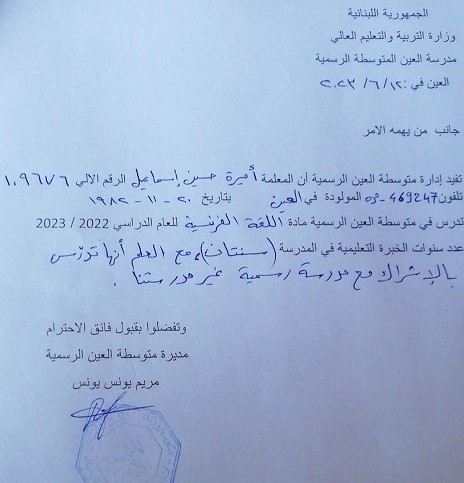 الجمهورية اللبنانية
وزارة التربية والتعليم العالي
مدرسة العين المتوسطة الرسمية
العين في: ١٢/ ٦/ ٢٠٢٣
جانب من يهمه الامر
تفيد إدارة متوسطة العين الرسمية أن المعلمة أميرة حسين إسماعيل الرقم الالي ١٠٩٦٧٦
تلفون 03-469247 المولودة في العين بتاريخ ٢٠ - ١١ - ١٩٨٢
تدرس في متوسطة العين الرسمية مادة اللغة الفرنسية للعام الدراسي 2022 / 2023
عدد سنوات الخبرة التعليمية في المدرسة (سنتان)، مع العلم أنها تدرّس
بالإشتراك مع مدرسة رسمية غير مدرستنا .
وتفضلوا بقبول فائق الاحترام
مديرة متوسطة العين الرسمية
مريم يونس يونس